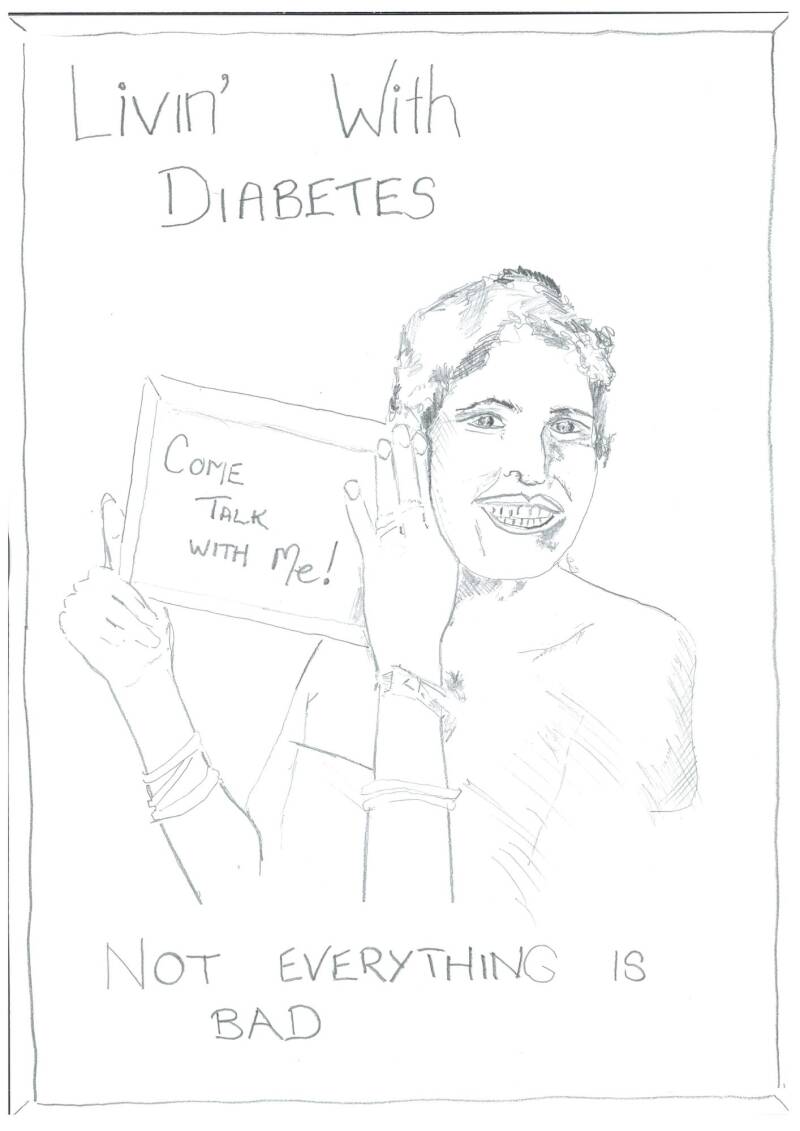 Livin' With
DIABETES
COME
TALK
WITH Me!
NOT EVERYTHING IS
BAD